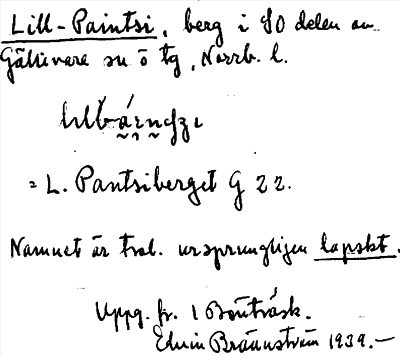 Lill-Paintsi, berg i SO delen av
Gällivare sn ö tg, Norrb. l.
= L. Pantsiberget G 22.
Namnet är trol. ursprungligen lapskt.
Uppg. fr. 1 Bönträsk.
Edvin Brännström 1939.—